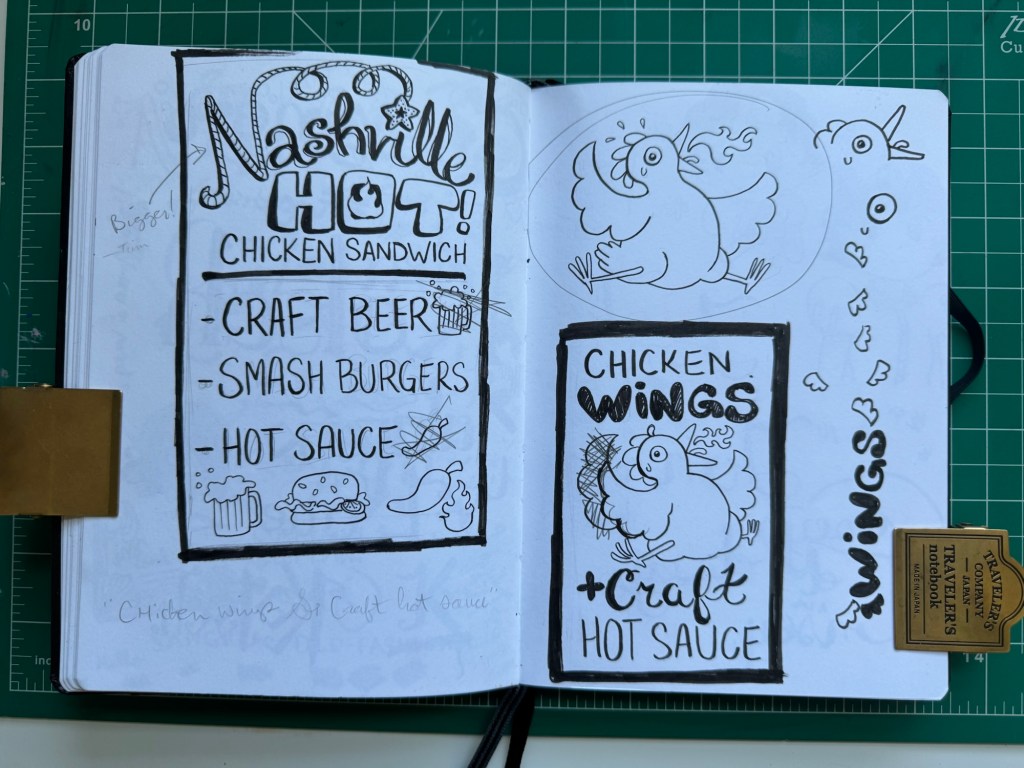 10
Nashville
HOT!
CHICKEN SANDWICH
- CRAFT BEER
- SMASH BURGERS
- HOT SAUCE
Bigger!
"Chicken wings & Craft hot sauce"
CHICKEN
WINGS
+Craft
HOT SAUCE
WINGS
TRAVELER'S
COMPANY
JAPAN
TRAVELER'S
notebook
MADE IN JAPAN.
14